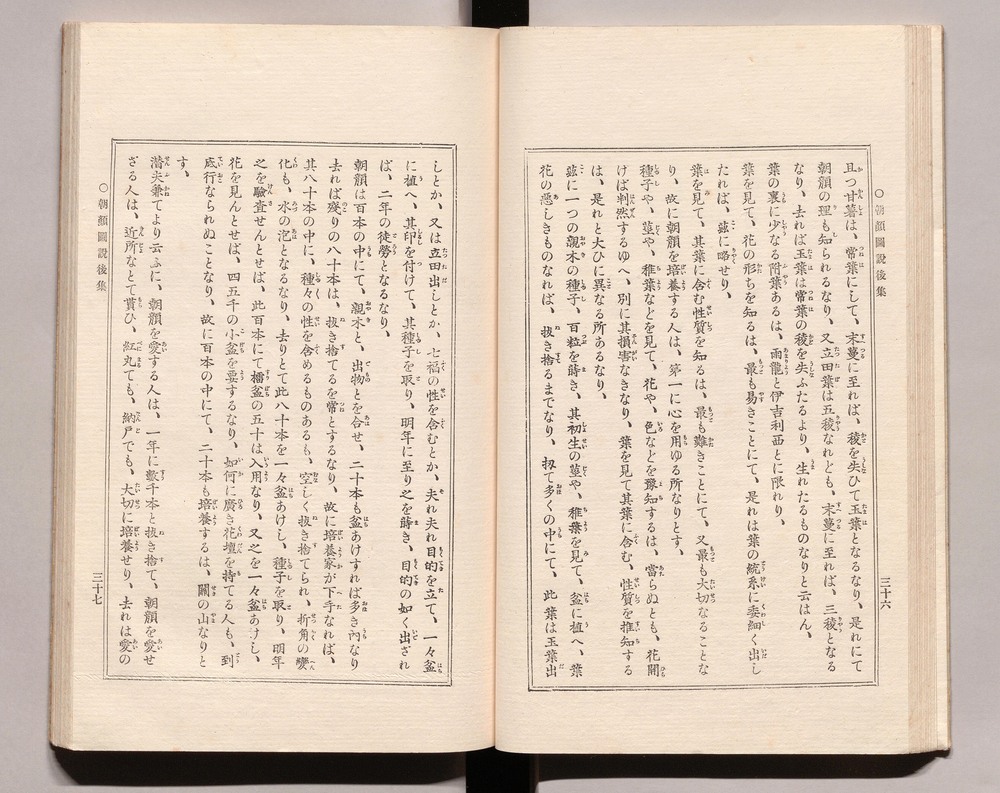 ○朝顔圖説後集
三十六
且つ甘薯は、常葉にして、末蔓に至れば、稜を失ひて玉葉となるなり、是れにて
朝顔の理も知られるなり、又立田葉は五稜なれども、末蔓に至れば、三稜となる
なり、去れば玉葉は常葉の稜を失ふたるより、生れたるものなりと云はん、
葉の裏に少なる附葉あるは、雨龍と伊吉利西とに限れり、
葉を見て、花の形ちを知るは、最も易きことにて、是れは葉の統系に委細く出し
たれば、玆に略せり、
葉を見て、其葉に含む性質を知るは、最も難きことにて、又最も大切なることな
り、故に朝顔を培養する人は、第一に心を用ゆる所なりとす、
種子や、莖や、稚葉などを見て、花や、色などを豫知するは、當らぬとも、花開
けば判然するゆへ、別に其損害なきなり、葉を見て其葉に含む、性質を推知する
は、是れと大ひに異なる所あるなり、
玆に一つの親木の種子、百粒を蒔き、其初生の莖や、稚葉を見て、盆に植へ、葉
花の惡しきものなれば、拔き捨るまでなり、扨て多くの中にて、此葉は玉葉出
しとか、又は立田出しとか、七福の性を含むとか、夫れ夫れ目的を立て、一々盆
に植へ、其印を付けて、其種子を取り、明年に至り之を蒔き、目的の如く出ざれ
ば、二年の徒勞となるなり、
朝顔は百本の中にて、親木と、出物とを合せ、二十本も盆あけすれば多き内なり
去れば殘りの八十本は、拔き捨てるを常とするなり、故に培養家が下手なれば、
其八十本の中に、種々の性を含めるものあるも、空しく拔き捨てられ、折角の變
化も、水の泡となるなり、去りとて此八十本を一々盆あけし、種子を取り、明年
之を驗査せんとせば、此百本にて播盆の五十は入用なり、又之を一々盆あけし、
花を見んとせば、四五千の小盆を要するなり、如何に廣き花壇を持てる人も、到
底行なられぬことなり、故に百本の中にて、二十本も培養するは、關の山なりと
す。
潜夫兼てより云ふに、朝顔を愛する人は、一年に數千本と拔き捨て、朝顔を愛せ
ざる人は、近所なとて貰ひ、紅丸ても、納戸でも、大切に培養せり、去れは愛の
○朝顔圖説後集
三十七